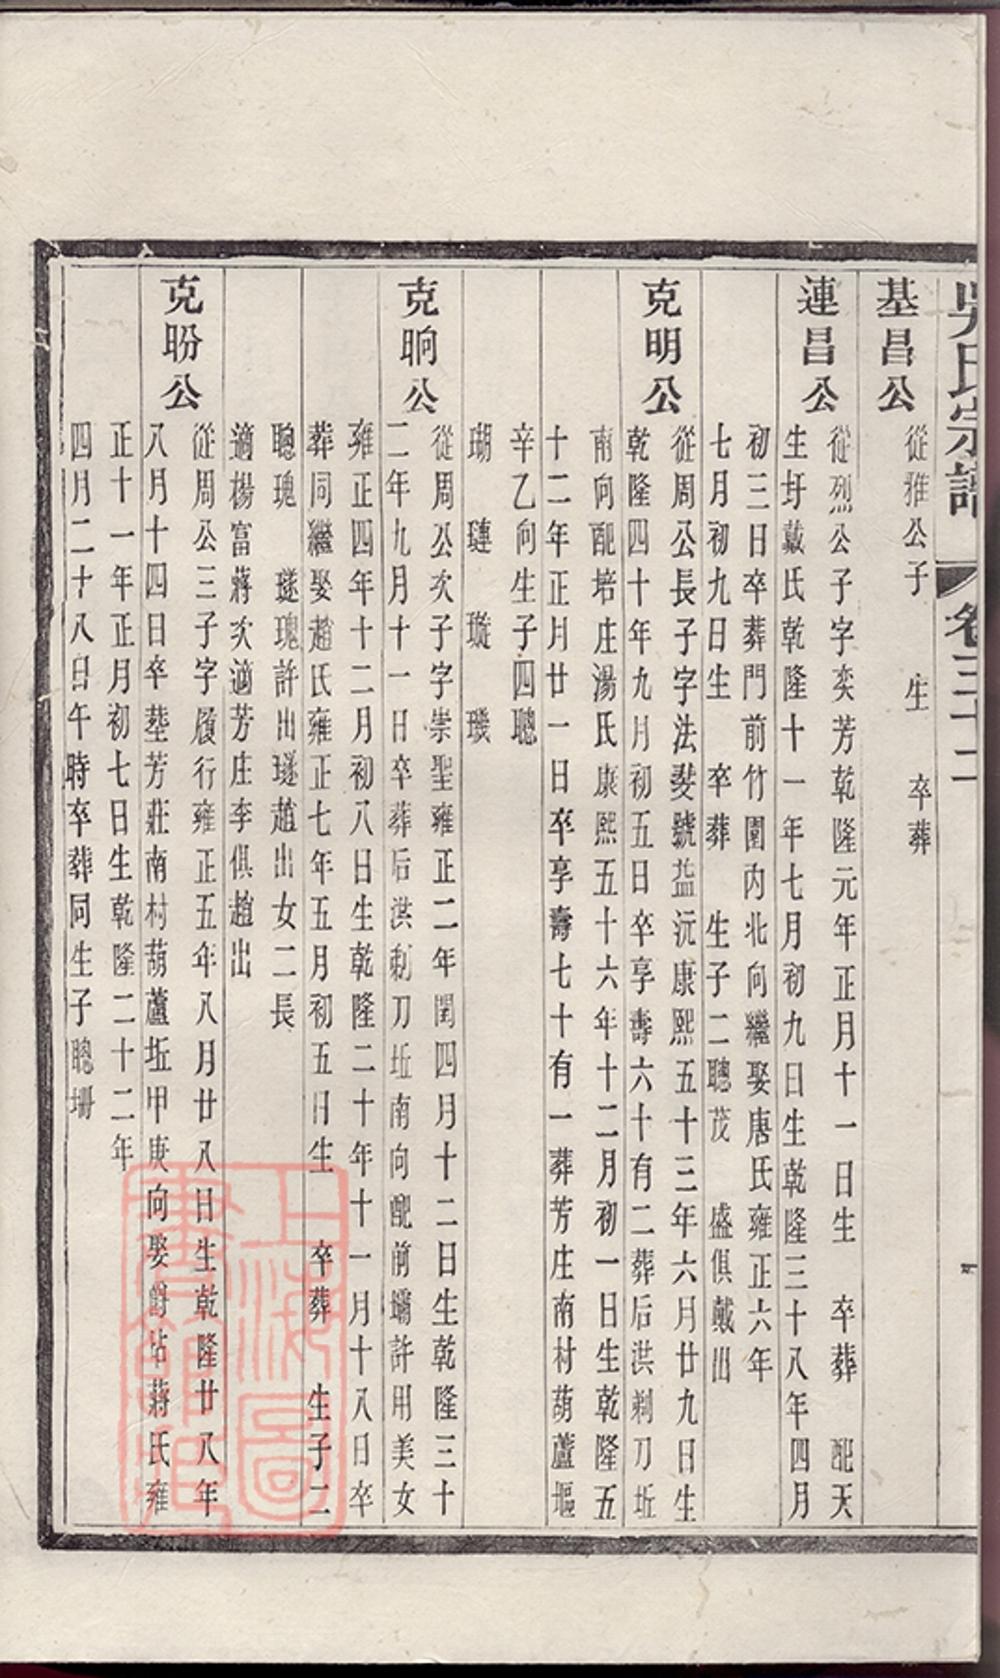 吳氏宗譜 卷三十二
基昌公
從雅公子 生 卒葬
連昌公
從烈公子字奕芳乾隆元年正月十一日生 卒葬 配天
生圩戴氏乾隆十一年七月初九日生乾隆三十八年四月
初三日卒葬門前竹園內北向繼娶唐氏雍正六年
七月初九日生 卒葬 生子二聰茂 盛俱戴出
克明公
從周公長子字法斐號益沅康熙五十三年六月廿九日生
乾隆四十年九月初五日卒享壽六十有二葬后洪剃刀坵
南向配培庄湯氏康熙五十六年十二月初一日生乾隆五
十二年正月廿一日卒享壽七十有一葬芳庄南村葫蘆塸
辛乙向生子四聰
瑚 璉 璇 璣
克晌公
從周公次子字崇聖雍正二年閏四月十二日生乾隆三十
二年九月十一日卒葬后洪剃刀坵南向配前墉許用美女
雍正四年十二月初八日生乾隆二十年十一月十八日卒
葬同繼娶趙氏雍正七年五月初五日生 卒葬 生子二
聰瑰 璲瑰許出璲趙出女二長
適楊富蔣次適芳庄李俱趙出
克盼公
從周公三子字履行雍正五年八月廿八日生乾隆廿八年
八月十四日卒塟芳莊南村葫蘆坵甲庚向娶爵坫蔣氏雍
正十一年正月初七日生乾隆二十二年
四月二十八日午時卒葬同生子聰珊
上海圖書館藏